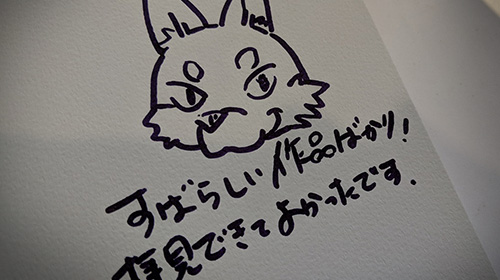 すばらしい作品ばかり!
拝見できてよかったです.